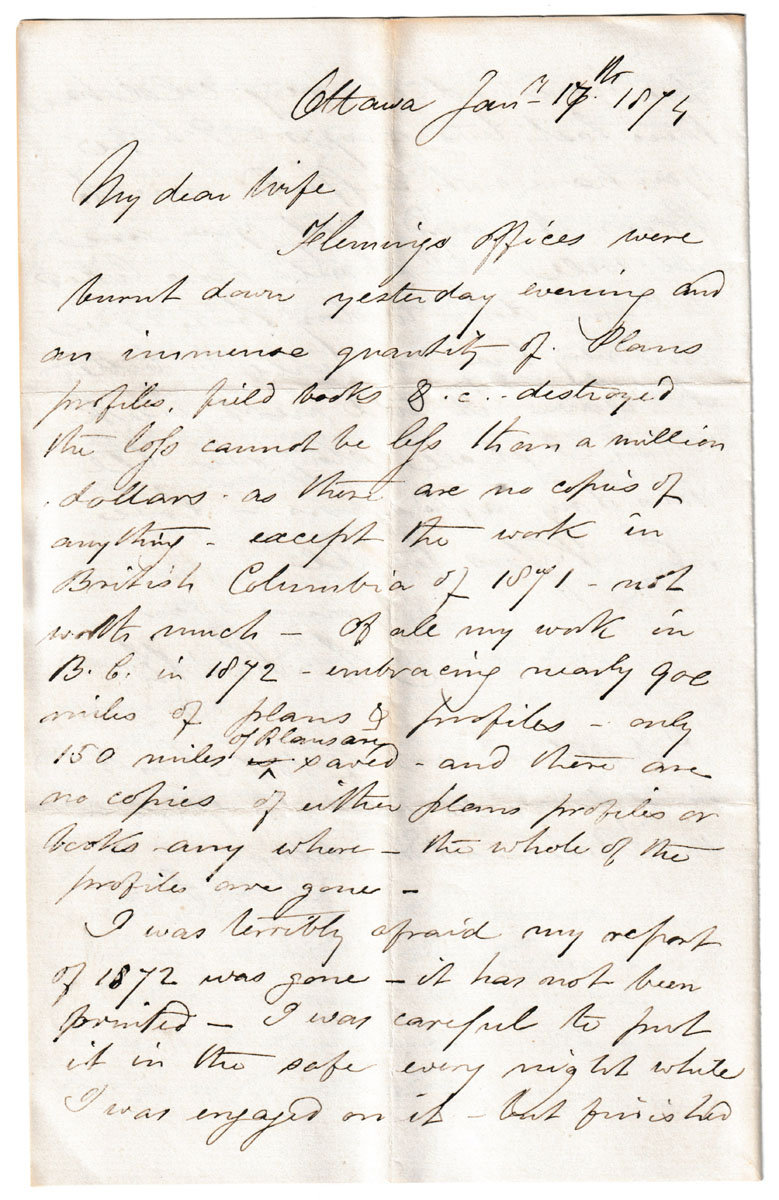 Ottawa Jany 17th. 1874
My dear Wife
Flemings offices were
burnt down yesterday evening and
an immense quantity of Plans
profiles, field books & . c . . destroyed
the loss cannot be less than a million
dollars . as there are no copies of
anything - except the work in
British Columbia of 1871 - not
worth much - Of all my work in
B. C. in 1872 - embracing nearly 900
miles of plans & profiles - only
of Plans are
150 miles saved - and there are
no copies of either plans profiles or
books any where - the whole of the
profiles are gone -
I was terribly afraid my report
of 1872 was gone - it has not been
printed - I was careful to put
it in the safe every night while
I was engaged on it - but finished